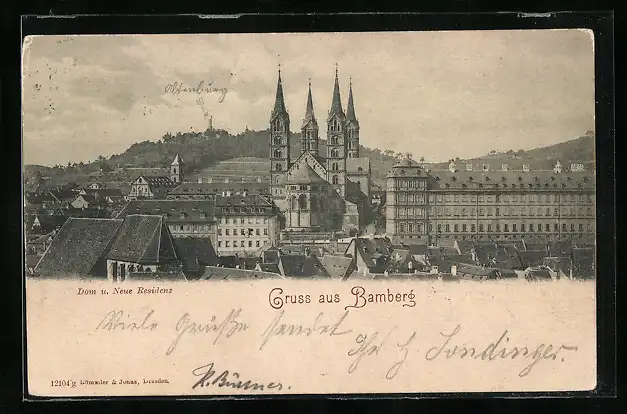 Altenburg
Dom u. Neue Residenz
Gruss aus Bamberg
Viele Grüße sendet
Ihr H. Sondinger.
12104 g Römmler & Jonas, Dresden